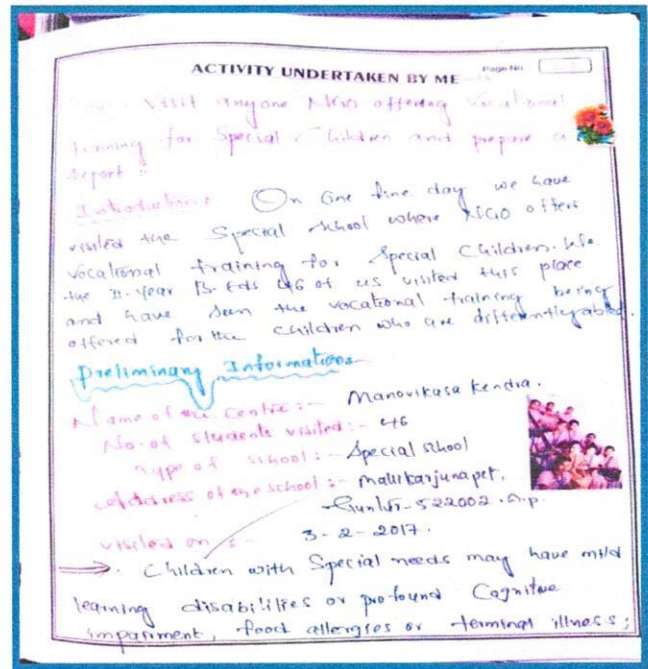 ACTIVITY UNDERTAKEN BY ME
Page No
Visit anyone NGO offering vocational
training for Special Children and prepare a
report :-
Introduction:- On one fine day we have
visited the Special school where NGO offers
vocational training for Special Children. We
the II-Year B.Eds 46 of us visited this place
and have seen the vocational training being
offered for the children who are differentlyabled.
Preliminary Information
Name of the Centre :- Manovikasa Kendra.
No. of students visited :- 46
Type of school :- Special school
Address of the school :- Mallikarjunapet,
Guntur-522002. A.p.
visited on :- 3-2-2017.
Children with Special needs may have mild
learning disabilities or profound Cognitive
impairment, food allergies or terminal illness;